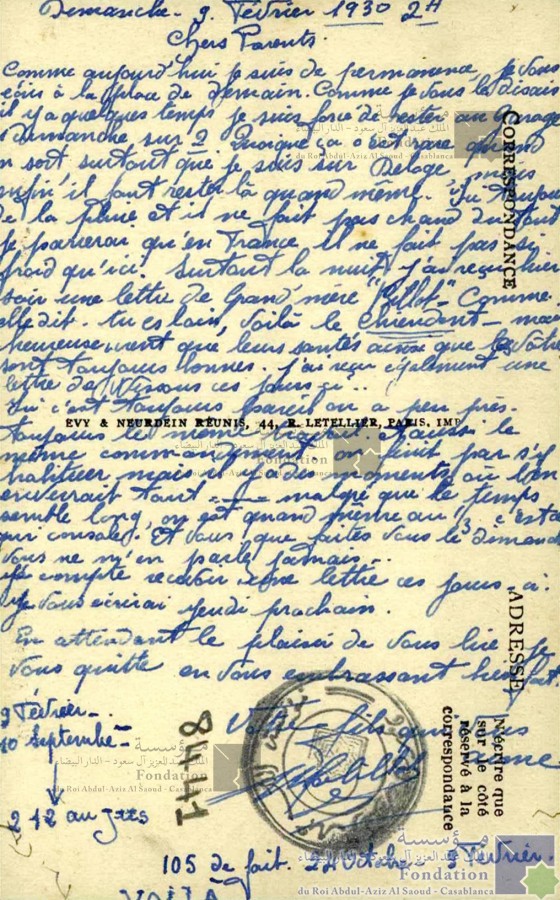 Demanche. 9. Février 1930 2H
Chers Parents.
Comme aujourd'hui je suis de permanence, je vous
écris à la place de demain. Comme je vous la disais
il y a quelques temps je suis forcé de rester au garage
1 dimanche sur 2 Quoique ça a été rare quand
on sort, surtout que je suis sur Delage, mais
enfin il faut rester là quand même.
de la pluie et il ne fait pas chaud du tout
je parierai qu'en France, il ne fait pas si
froid qu'ici. Surtout la nuit, j'ai reçu hier
soir une lettre de Grand'mère "Billot" Comme
elle dit. tu es loin, voilà le Chiendent mal
heureusement que leurs santés ainsi que la vôtre
sont toujours bonnes. j'ai reçu également une
lettre de ces jours ci..
Ici c'est toujours pareil ou a peu près.
EVY & NEURDEIN RÉUNIS, 44, R. LETELLIER, PARIS, IMP
toujours le même
même commandement on finit par s'y
habituer mais il y a des moments où l'on
enverrait tout - malgré que le temps
semble long, on est quand même au 1/3 c'est ça
qui console. Et vous, que faites vous le dimanche
vous ne m'en parlé jamais..
Je compte recevoir une lettre ces jours-ci.
Je vous écrirai jeudi prochain.
En attendant le plaisir de vous lire je
vous quitte en vous embrassant bien fort.
Votre fils qui vous aime
9 Février
10 Septembre
212 au jus
105 de fait. 22 Octobre 9 Février.
VOILA
CORRESPONDANCE
ADRESSE
N'écrire que
sur le côté
réservé à la
correspondance
مؤسسة
الملك عبد العزيز آل سعود - الدار البيضاء
Fondation
du Roi Abdul-Aziz Al Saoud - Casablanca